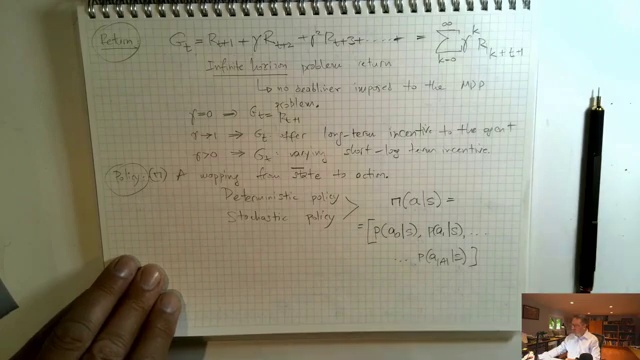 Return G_t = R_{t+1} + γR_{t+2} + γ²R_{t+3} + ..... + = ∑_{k=0}^{∞} γ^k R_{k+t+1}
Infinite horizon problem return
↳ no deadline imposed to the MDP
problem.
γ=0 ⟹ G_t = R_{t+1}
γ→1 ⟹ G_t offer long-term incentive to the agent
γ>0 ⟹ G_t: varying short-log term incentive.
Policy: (π) A mapping from state to action.
Deterministic policy
Stochastic policy
π(a|s) =
= [p(a_0|s), p(a_1|s), ...
... p(a_{|A|}|s)]